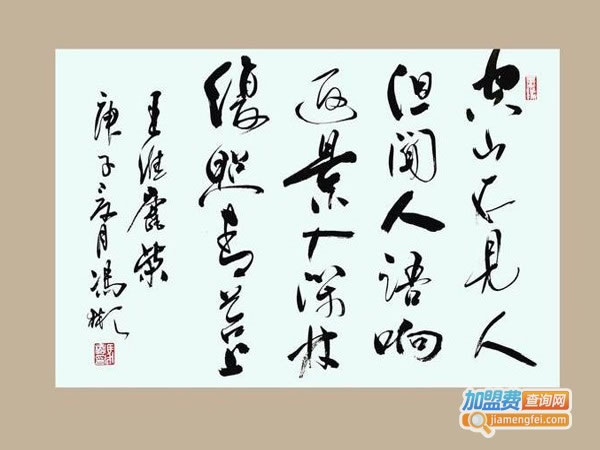 空山不見人
但聞人語响
返景入深林
復照青苔上
王維鹿柴
庚子 月馮彬
加盟费查询网
jiamengfei.com